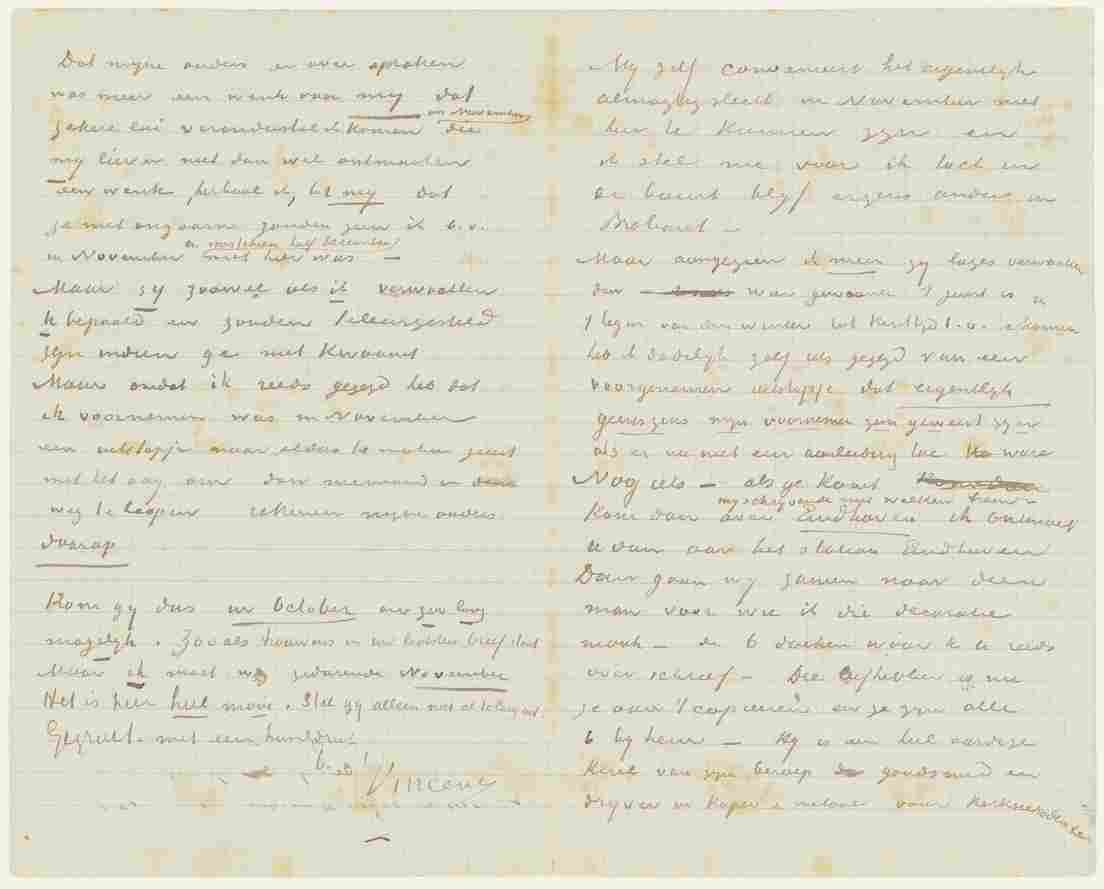 Dat mijne ouders er over spraken
was meer een wenk voor mij dat
zekere lui verondersteld komen die
in November
mij liever niet dan wel ontmoeten
een wenk, herhaal ik, tot mij dat
ze niet ongaarne zouden zien ik b.v.
en misschien half December
in November niet hier was —
Maar zij zoowel als ik verwachten
U bepaald en zouden teleurgesteld
zijn indien ge niet kwaamt
Maar omdat ik reeds gezegd heb dat
ik voornemen was in November
een uitstapje naar elders te maken juist
met het oog om dan niemand in
weg te loopen rekenen mijne ouders
daarop
Kom gij dus in October en zoo lang
mogelijk. Zooals trouwens in uw laatsten brief staat
Maar ik moet weg gedurende November
Het is hier heel mooi. Stel gij alleen niet al te lang uit.
Gegroet met een handdruk
Vincent
Mij zelf convenieert het eigenlijk
almagtig slecht in November niet
hier te kunnen zijn en
ik stel me voor ik toch in
de buurt blijf ergens anders in
Brabant —
Maar aangezien ik meen zij logés verwachten
dan waar gewoonte 't juist is in
't begin van den winter tot Kersttijd b.v. te komen
heb ik dadelijk zelf iets gezegd van een
voorgenomen uitstapje dat eigentlijk
geenszins mijn voornemen zou geweest zijn
als er nu niet een aanleiding toe ware
Nog iets — als ge komt
mij schrijvende met welken trein
kom dan over Eindhoven ik ontmoet
u dan aan het station Eindhoven
Dan gaan wij zamen naar dien
man voor wie ik die decoratie
maak — de 6 doeken waar ik u reeds
over schreef — Die liefhebber is nu
ze aan 't copieren en ze zijn alle
6 bij hem — Hij is een heel aardige
kerel van zijn beroep goudsmid en
drijver in koper & metaal voor kerksieraden &c